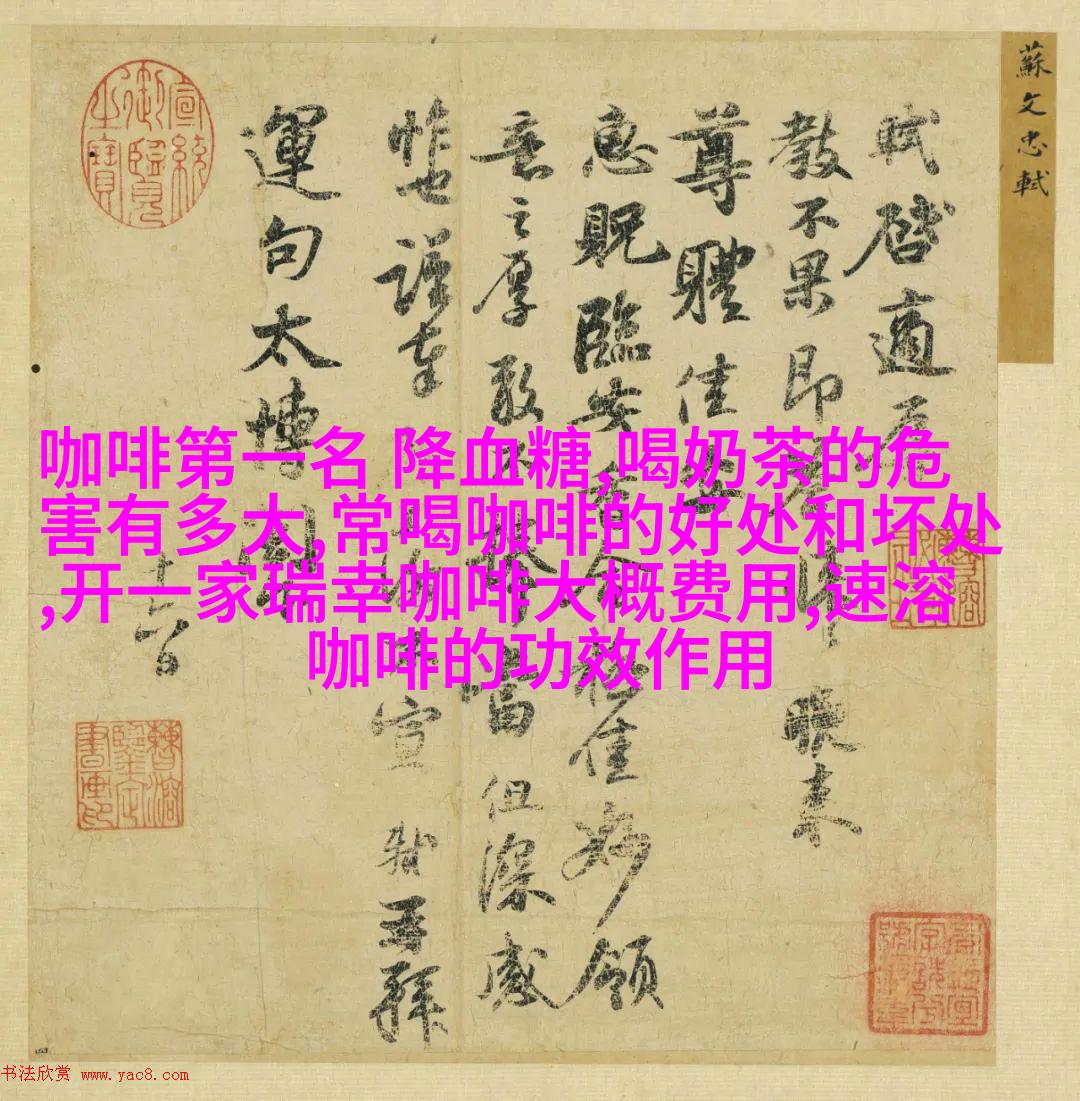 蘇文忠軾
軾啓適辱
教不果即 晚來
尊體佳
惠貺臨安 佳妙領
意之厚敢 當但深感
怍也謹奉 宣 軾再拜
運句太博
咖啡第一名 降血糖,喝奶茶的危
害有多大,常喝咖啡的好处和坏处
,开一家瑞幸咖啡大概费用,速溶
咖啡的功效作用
书法欣赏 www.yac8.com